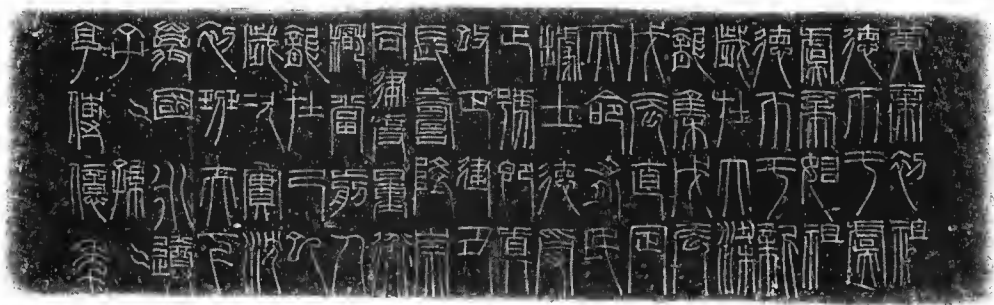 黃帝初祖
德帀于虞
虞帝始祖
德帀于新
歲在大梁
龍集戊辰
戊辰直定
天命有民
據土德受
正號即真
改正建丑
長壽隆崇
同律度量衡
稽當前人
龍在己巳
歲次實沈
初班天下
萬國永遵
子〻孫〻
享傳億年